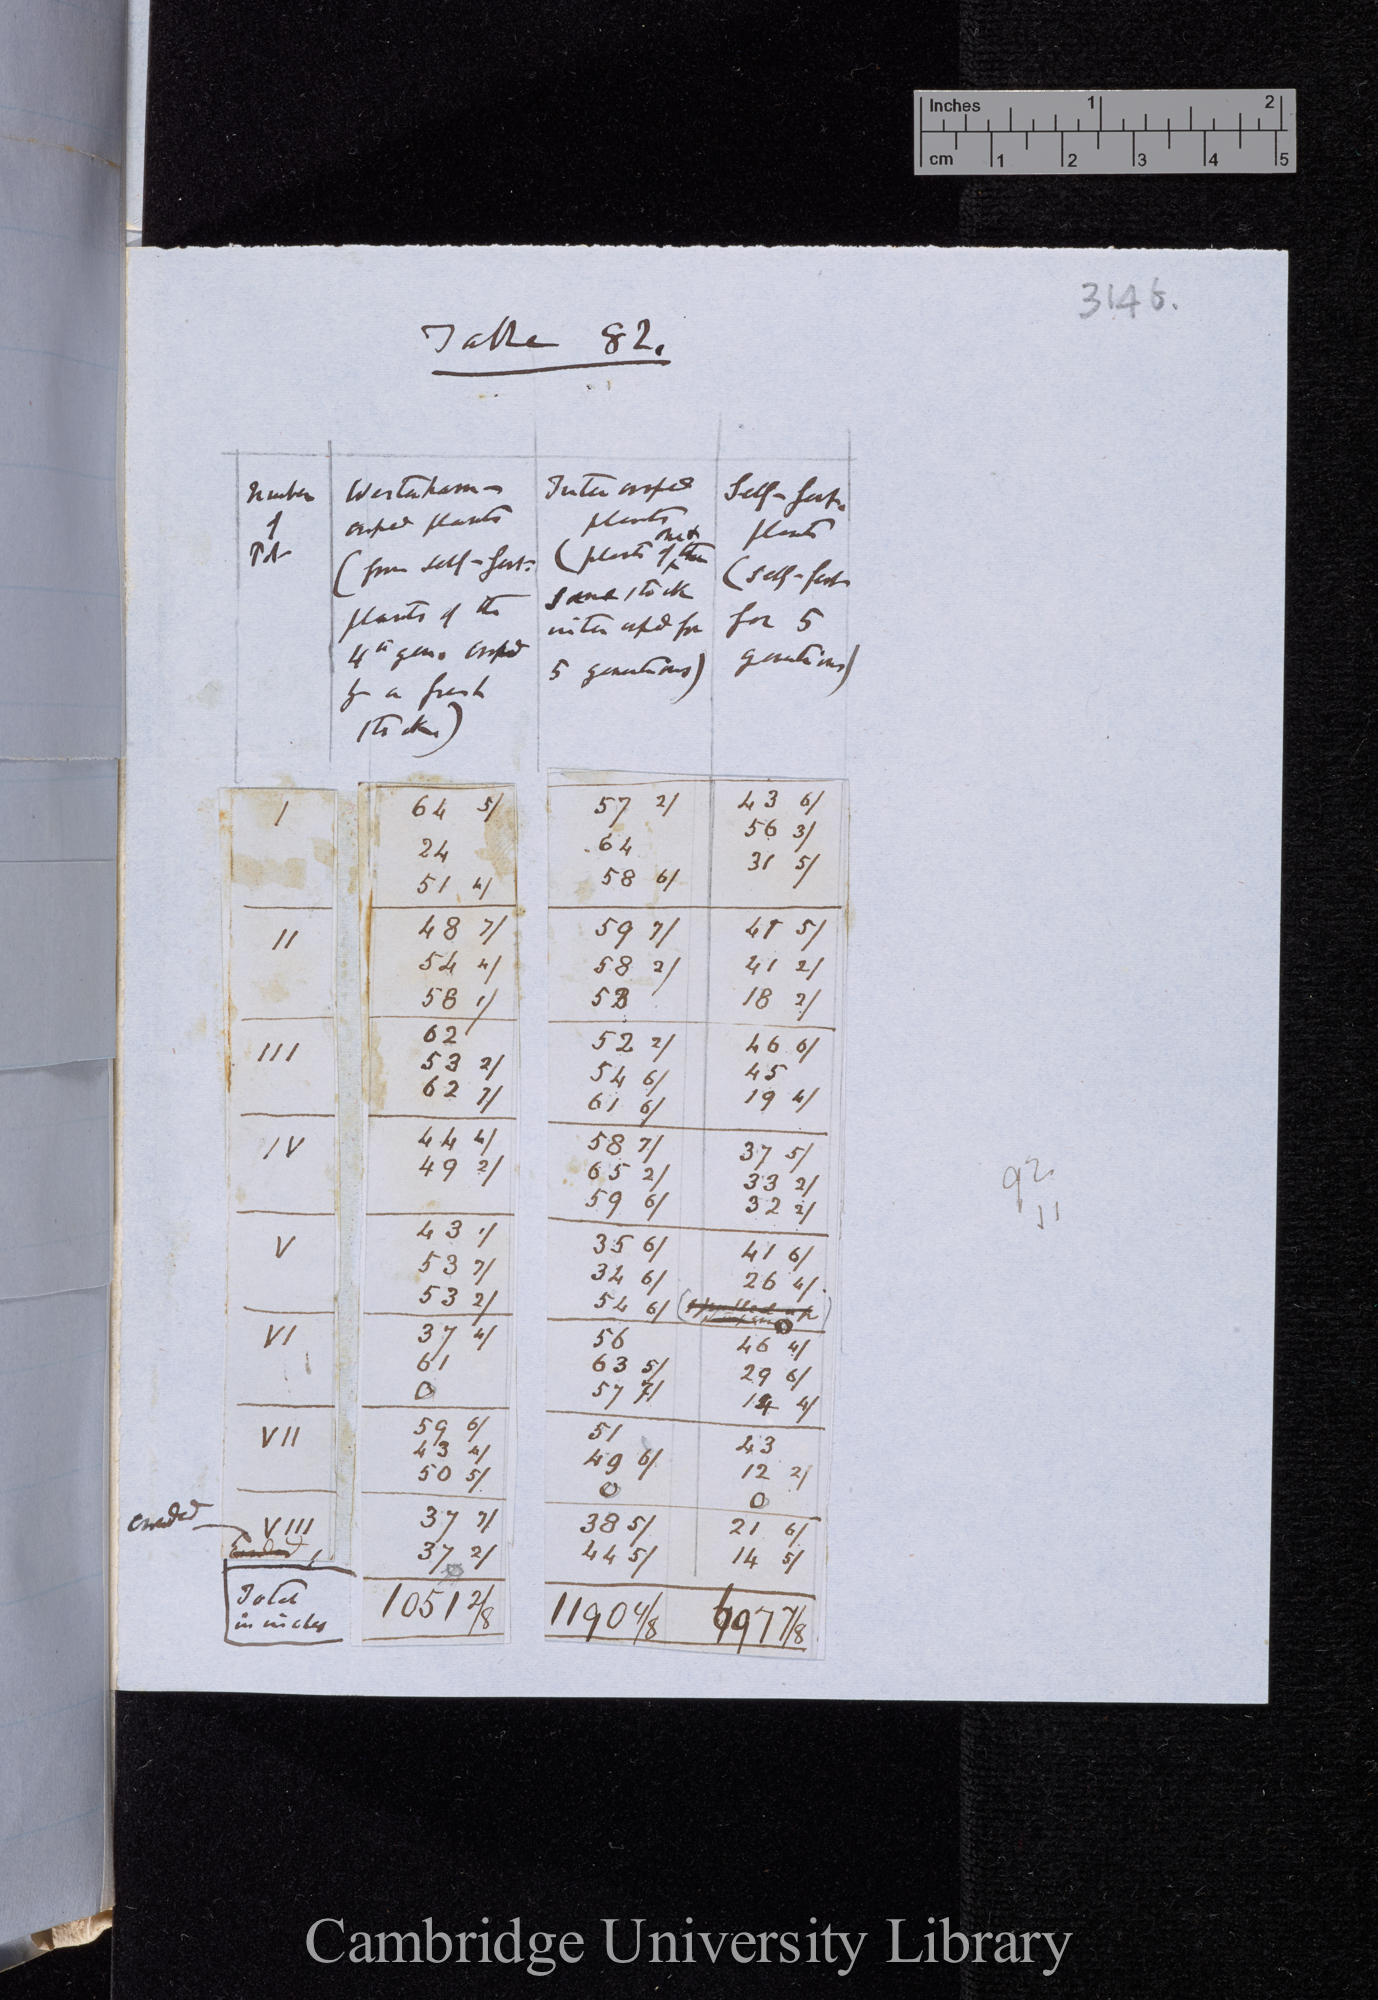 Inches 1 2
cm 1 2 3 4 5
3146.
Table 82.
Number
of
Pot
Westerham-
crossed plants
(from self-fert:
plants of the
4th gen. crossed
by a fresh
stock)
Intercrossed
plants
(plants of one &
same stock
intercrossed for
5 generations)
Self-fert.
plants
(self-fert
for 5
generations)
I 64 5/ 57 2/ 43 6/
24 64 56 3/
51 4/ 58 6/ 31 5/
II 48 7/ 59 7/ 41 5/
54 4/ 58 2/ 41 2/
58 1/ 53 18 2/
III 62 52 2/ 46 6/
53 2/ 54 6/ 45
62 7/ 61 6/ 19 4/
IV 44 4/ 58 7/ 37 5/
49 2/ 65 2/ 33 2/
59 6/ 32 2/
V 43 1/ 35 6/ 41 6/
53 7/ 34 6/ 26 4/
53 2/ 54 6/ 0
VI 37 4/ 56 46 4/
61 63 5/ 29 6/
0 57 7/ 14 4/
VII 59 6/ 51 43
43 4/ 49 6/ 12 2/
50 5/ 0 0
crowded
VIII 37 7/ 38 5/ 21 6/
37 2/ 44 5/ 14 5/
Total
in inches
1051 2/8 1190 4/8 697 7/8
92
11
Cambridge University Library